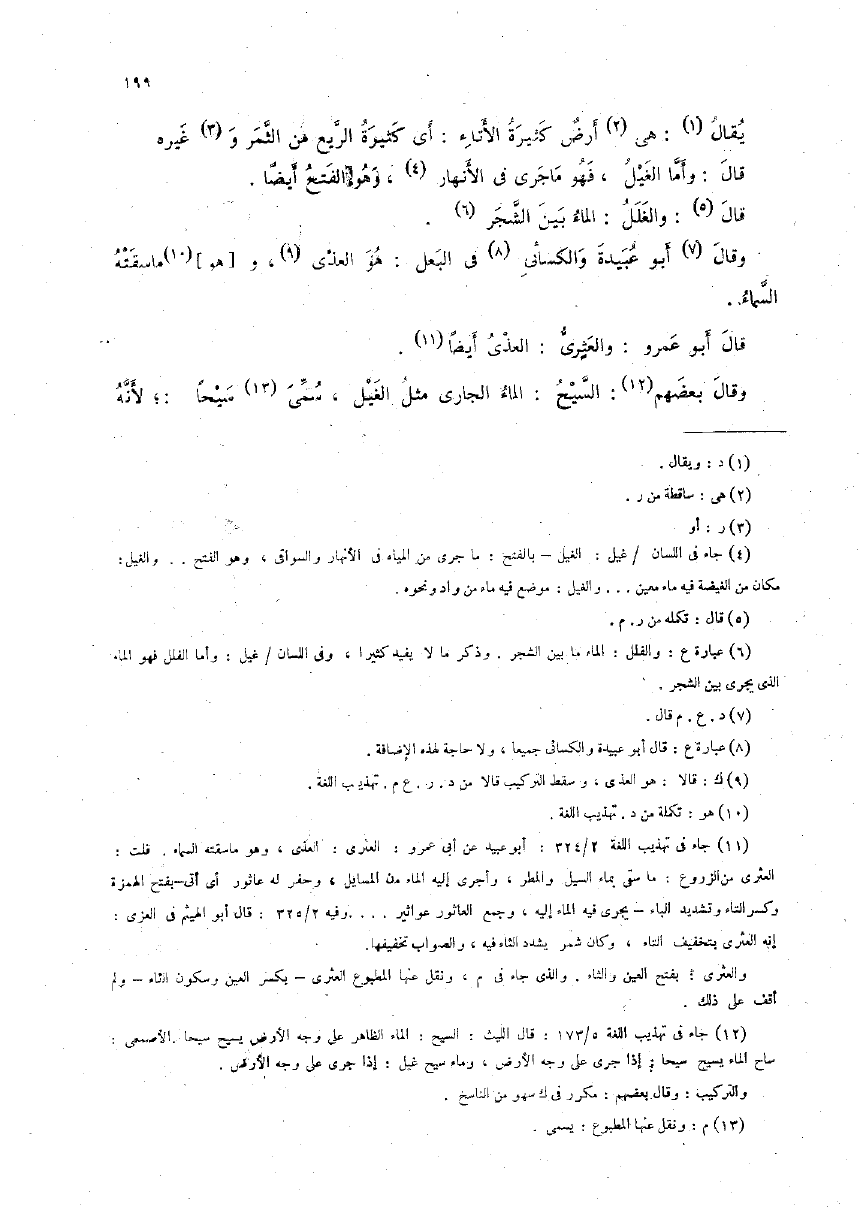 ١٩٩
يُقالُ (١) : هى (٢) أَرضٌ كَثيرَةُ الأَتاءِ : أَى كَثيرَةُ الرَّيع مِن الثَّمَر وَ (٣) غَيره
قالَ : وأَمَّا الغَيْلُ ، فَهُو مَاجَرى فى الأَنهار (٤) ، وَهُو الفَتحُ أَيضًا .
قالَ (٥) : والغَلَلُ : الماءُ بَينَ الشَّجَر (٦) .
وقالَ (٧) أَبو عُبَيدةَ وَالكسائى (٨) فى البَعل : هُوَ العذْى (٩) ، و [ هو ] (١٠) ماسقَتْهُ
السَّماءُ .
قالَ أَبو عَمرو : والعَثِرىُّ : العذْىُ أَيضاً (١١) .
وقالَ بعضَهم (١٢) : السَّيْحُ : الماءُ الجارى مثلُ الغَيْل ، سُمِّىَ (١٣) سَيْحاً : ؛ لأَنَّهُ
(١) د : ويقال .
(٢) هى : ساقطة من ر .
(٣) ر : أو
(٤) جاء فى اللسان / غيل : الغيل – بالفتح : ما جرى من المياه فى الأنهار والسواقى ، وهو الفتح . . والغيل :
مكان من الغيضة فيه ماء معين . . . والغيل : موضع فيه ماء من واد ونحوه .
(٥) قال : تكملة من ر . م .
(٦) عبارة ع : والغلل : الماء ما بين الشجر . وذكر ما لا يفيد كثيرا ، وفى اللسان / غيل : وأما الغلل فهو الماء
الذى يجرى بين الشجر .
(٧) د . ع . م قال .
(٨) عبارة ع : قال أبو عبيدة والكسائى جميعا ، ولا حاجة لهذه الإضافة .
(٩) ك : قالا : هو العذى ، وسقط التركيب قالا من د . ر . ع م . تهذيب اللغة .
(١٠) هو : تكملة من د . تهذيب اللغة .
(١١) جاء فى تهذيب اللغة ٣٢٤/٢ : أبو عبيد عن أبى عمرو : العثرى : العذى ، وهو ماسقته السماء . قلت :
العثرى من الزروع : ما سقى بماء السيل والمطر ، وأجرى إليه الماء من المسايل ، وحفر له عاثور أى أتى–بفتح الهمزة
وكسر التاء وتشديد الياء – يجرى فيه الماء إليه ، وجمع العاثور عواثير . . . وفيه ٣٢٥/٢ : قال أبو الهيثم فى العزى :
إنه العثرى بتخفيف الثاء ، وكان شمر يشدد الثاء فيه ، والصواب تخفيفها .
والعثرى : بفتح العين والثاء . والذى جاء فى م ، ونقل عنها المطبوع العثرى – بكسر العين وسكون الثاء – ولم
أقف على ذلك .
(١٢) جاء فى تهذيب اللغة ١٧٣/٥ : قال الليث : السيح : الماء الظاهر على وجه الأرض يسيح سيحا . الأصمعى :
ساح الماء يسيح سيحا : إذا جرى على وجه الأرض ، وماء سيح غيل : إذا جرى على وجه الأرض .
والتركيب : وقال بعضهم : مكرر فى ك سهو من الناسخ .
(١٣) م : ونقل عنها المطبوع : يسمى .